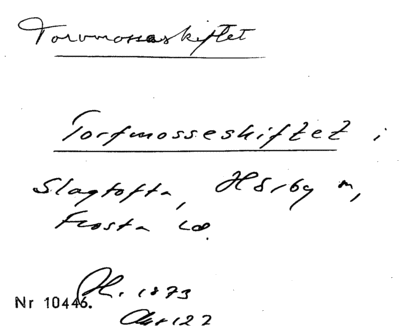 Torvmosseskiftet
Torfmosseskiftet i
Slagtofta, Hörby sn,
Frosta hd.
H. 1873
Nr 10446.
Akt 122